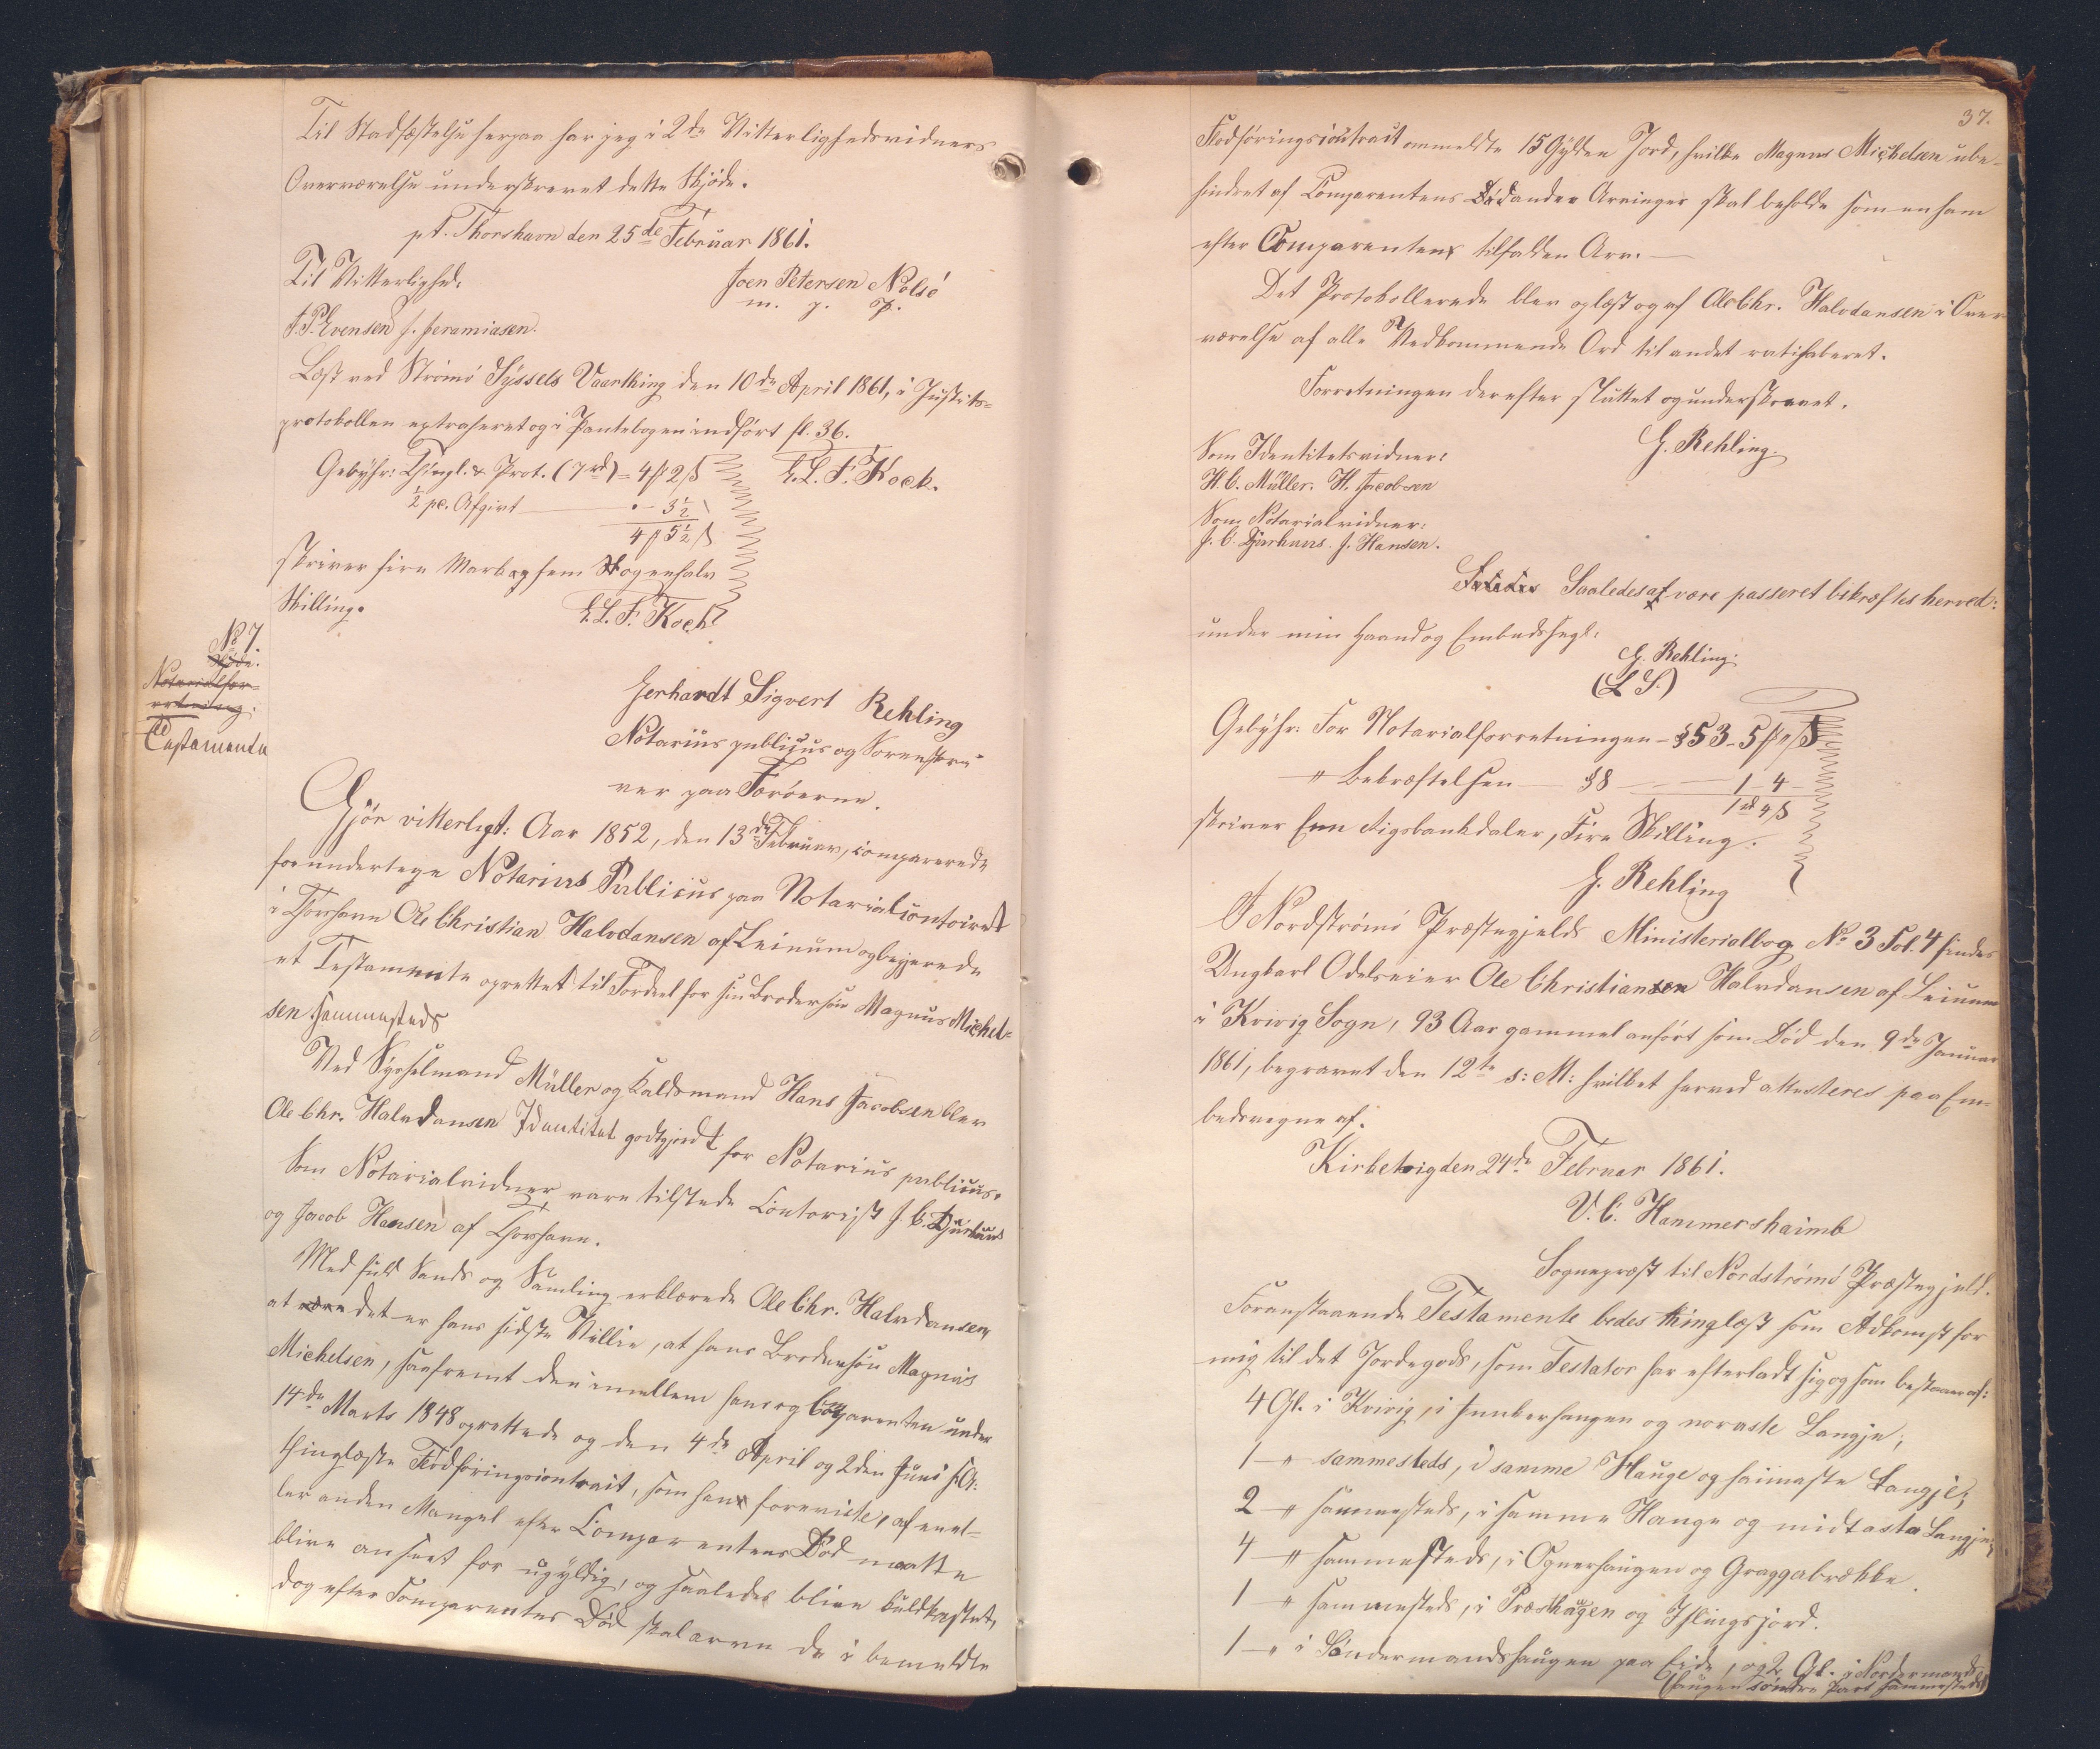 Til Stadfæstelse herpaa har jeg i 2de Vitterlighedsvidners
Overværelse underskrevet dette Skjøde.
pt. Thorshavn den 25de Februar 1861.
Til Vitterlighed:
Joen Petersen Nolsö
m. p. p.
J. P. Evensen J. Jeramiasen.
Læst ved Strömö Syssels Vaarthing den 10de April 1861, i Justits-
protokollen extraheret og i Pantebogen indført fl. 36.
Gebyhr: Thingl. & Prot. (7rd) = 4 ß 2 ß
E. L. F. Kock.
½ pc. Afgivt - 3½
4 ß 5½ ß
skriver fire Mark og fem St og en halv
Skilling.
E. L. F. Koch
No 7.
Skjöde.
Notarialfor-
retning.
Testamente
Gerhardt Sigvert Rehling
Notarius publicus og Sorenskri-
ver paa Færöerne.
Gjör vitterligt: Aar 1852, den 13de Februar, comparerede
for undertegn Notarius Publicus paa Notarialcontoiret
i Thorshavn Ole Christian Halvdansen af Leinum og begjerede
et Testamente oprettet til Fordeel for sin Brodersön Magnus Michel-
sen sammesteds
Ved Sysselmand Müller og Kaldsmand Hans Jacobsen blev
Ole Chr. Halvdansen Identitet godtgjordt for Notarius publicus.
Som Notarialvidner vare tilstede Contorist J. C. Djurhuus
og Jacob Hansen af Thorshavn.
Med fuld Sands og Samling erklærede Ole Chr. Halvdansen,
at være det er hans sidste Villie, at hans Brodersön Magnus
Michelsen, saafremt den imellem ham og Comparenten under
14de Marts 1848 oprettede og den 4de April og 2den Juni s. A.
thinglæste Flodføringscontract, som han foreviste, af en el-
ler anden Mangel efter Comparentens Död maatte
blive anseet for ugyldig, og saaledes blive kuldkastet,
dog efter Comparentes Död skal arve de i bemeldte
37.
Flodføringscontract ommeldte 15 Gylden Jord, hvilke Magnus Michelsen ube-
hindret af Comparentens Död andre Arvinger skal beholde som en ham
efter Comparenten tilfalden Arv. —
Det Protokollerede blev oplæst og af Ole Chr. Halvdansen i Over-
værelse af alle Vedkommende Ord til andet ratihaberet.
Forretningen derefter sluttet og underskrevet.
G. Rehling.
Som Identitetsvidner:
H. C. Müller. H. Jacobsen
Som Notarialvidner:
J. C. Djurhuus. J. Hansen.
Saaledes at være passeret bekræftes herved:
under min Haand og Embedssegl:
G. Rehling.
(L S.)
Gebyhr: For Notarialforretningen - § 53 - 5 ß " ß
" Bekræftelsen — § 8 — 1 - 4 -
1 rd 4 ß
skriver Een Rigsbankdaler, Fire Skilling.
G. Rehling
I Nordströmö Præstegjelds Ministerialbog No 3 Fol. 4 findes
Ungkarl Odelseier Ole Christiansen Halvdansen af Leinum
i Kvivig Sogn, 93 Aar gammel anfört som Död den 9de Januar
1861, begravet den 12te s: M: hvilket herved attesteres paa Em-
bedsvegne af.
Kirkevig den 24de Februar 1861.
V. C. Hammershaimb
Sognepræst til Nordströmö Præstegjeld.
Foranstaaende Testamente bedes thinglæst som Adkomst for
mig til det Jordegods, som Testator har efterladt sig og som bestaaer af:
4 Gl. i Kvivig, i Innkerhaugen og noraste Langje;
1 — " sammesteds, i samme Hauge og haimaste Langje;
2 — " sammesteds, i samme Hauge og midtasta Langje;
4 — " sammesteds, i Ognerhaugen og Graggabrække.
1 — " sammesteds, i Præsthaugen og Islingsjord.
1 — " i Söndermandshaugen paa Eide, og 2 Gl. i Nordermands-
haugen söndre Part sammesteds